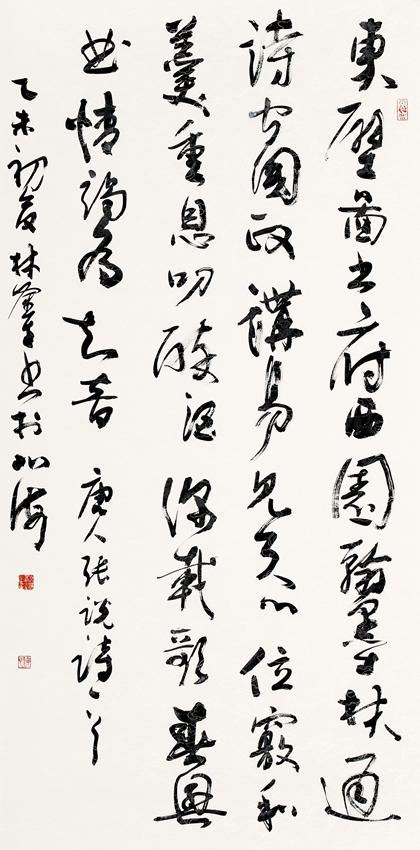 東壁圖書府西園翰墨林通
詩聞國政講易見天心位竊和
羹重恩叨醉酒深載歌春興
曲情竭為知音 唐人張說詩一首
乙未初夏林書於海